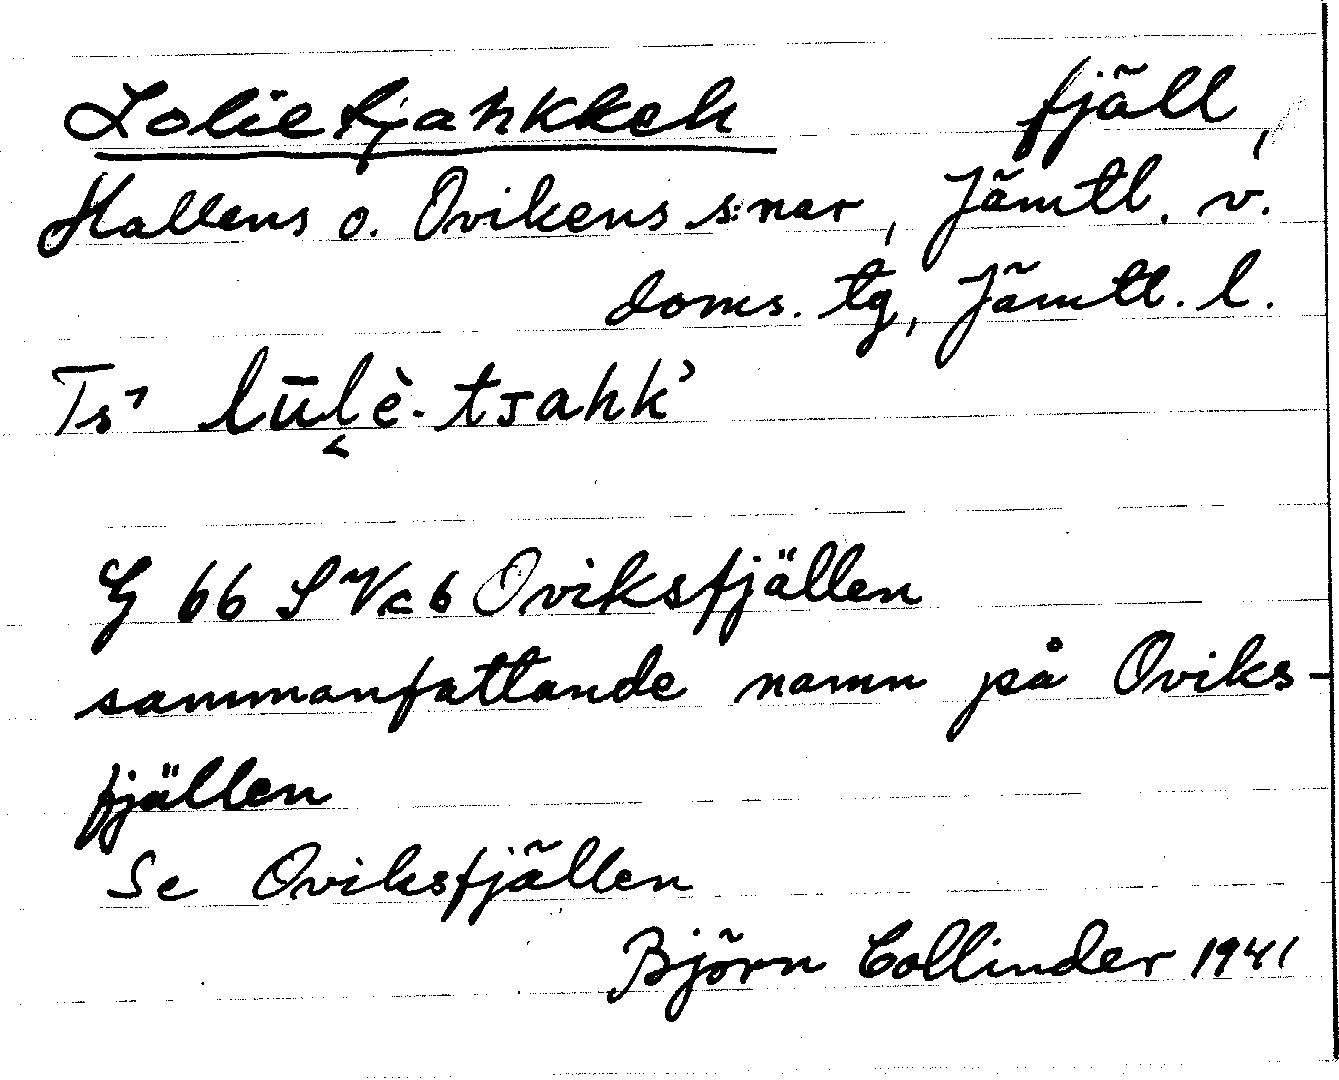 Lolietjahkkeh fjäll,
Hallens o. Ovikens s:nar, Jämtl. v.
doms. tg, Jämtl. l.
lūl̬è-tsahk’
66 Oviksfjällen
sammanfattande namn på Oviks-
fjällen
Se Oviksfjällen
Björn Collinder 1941